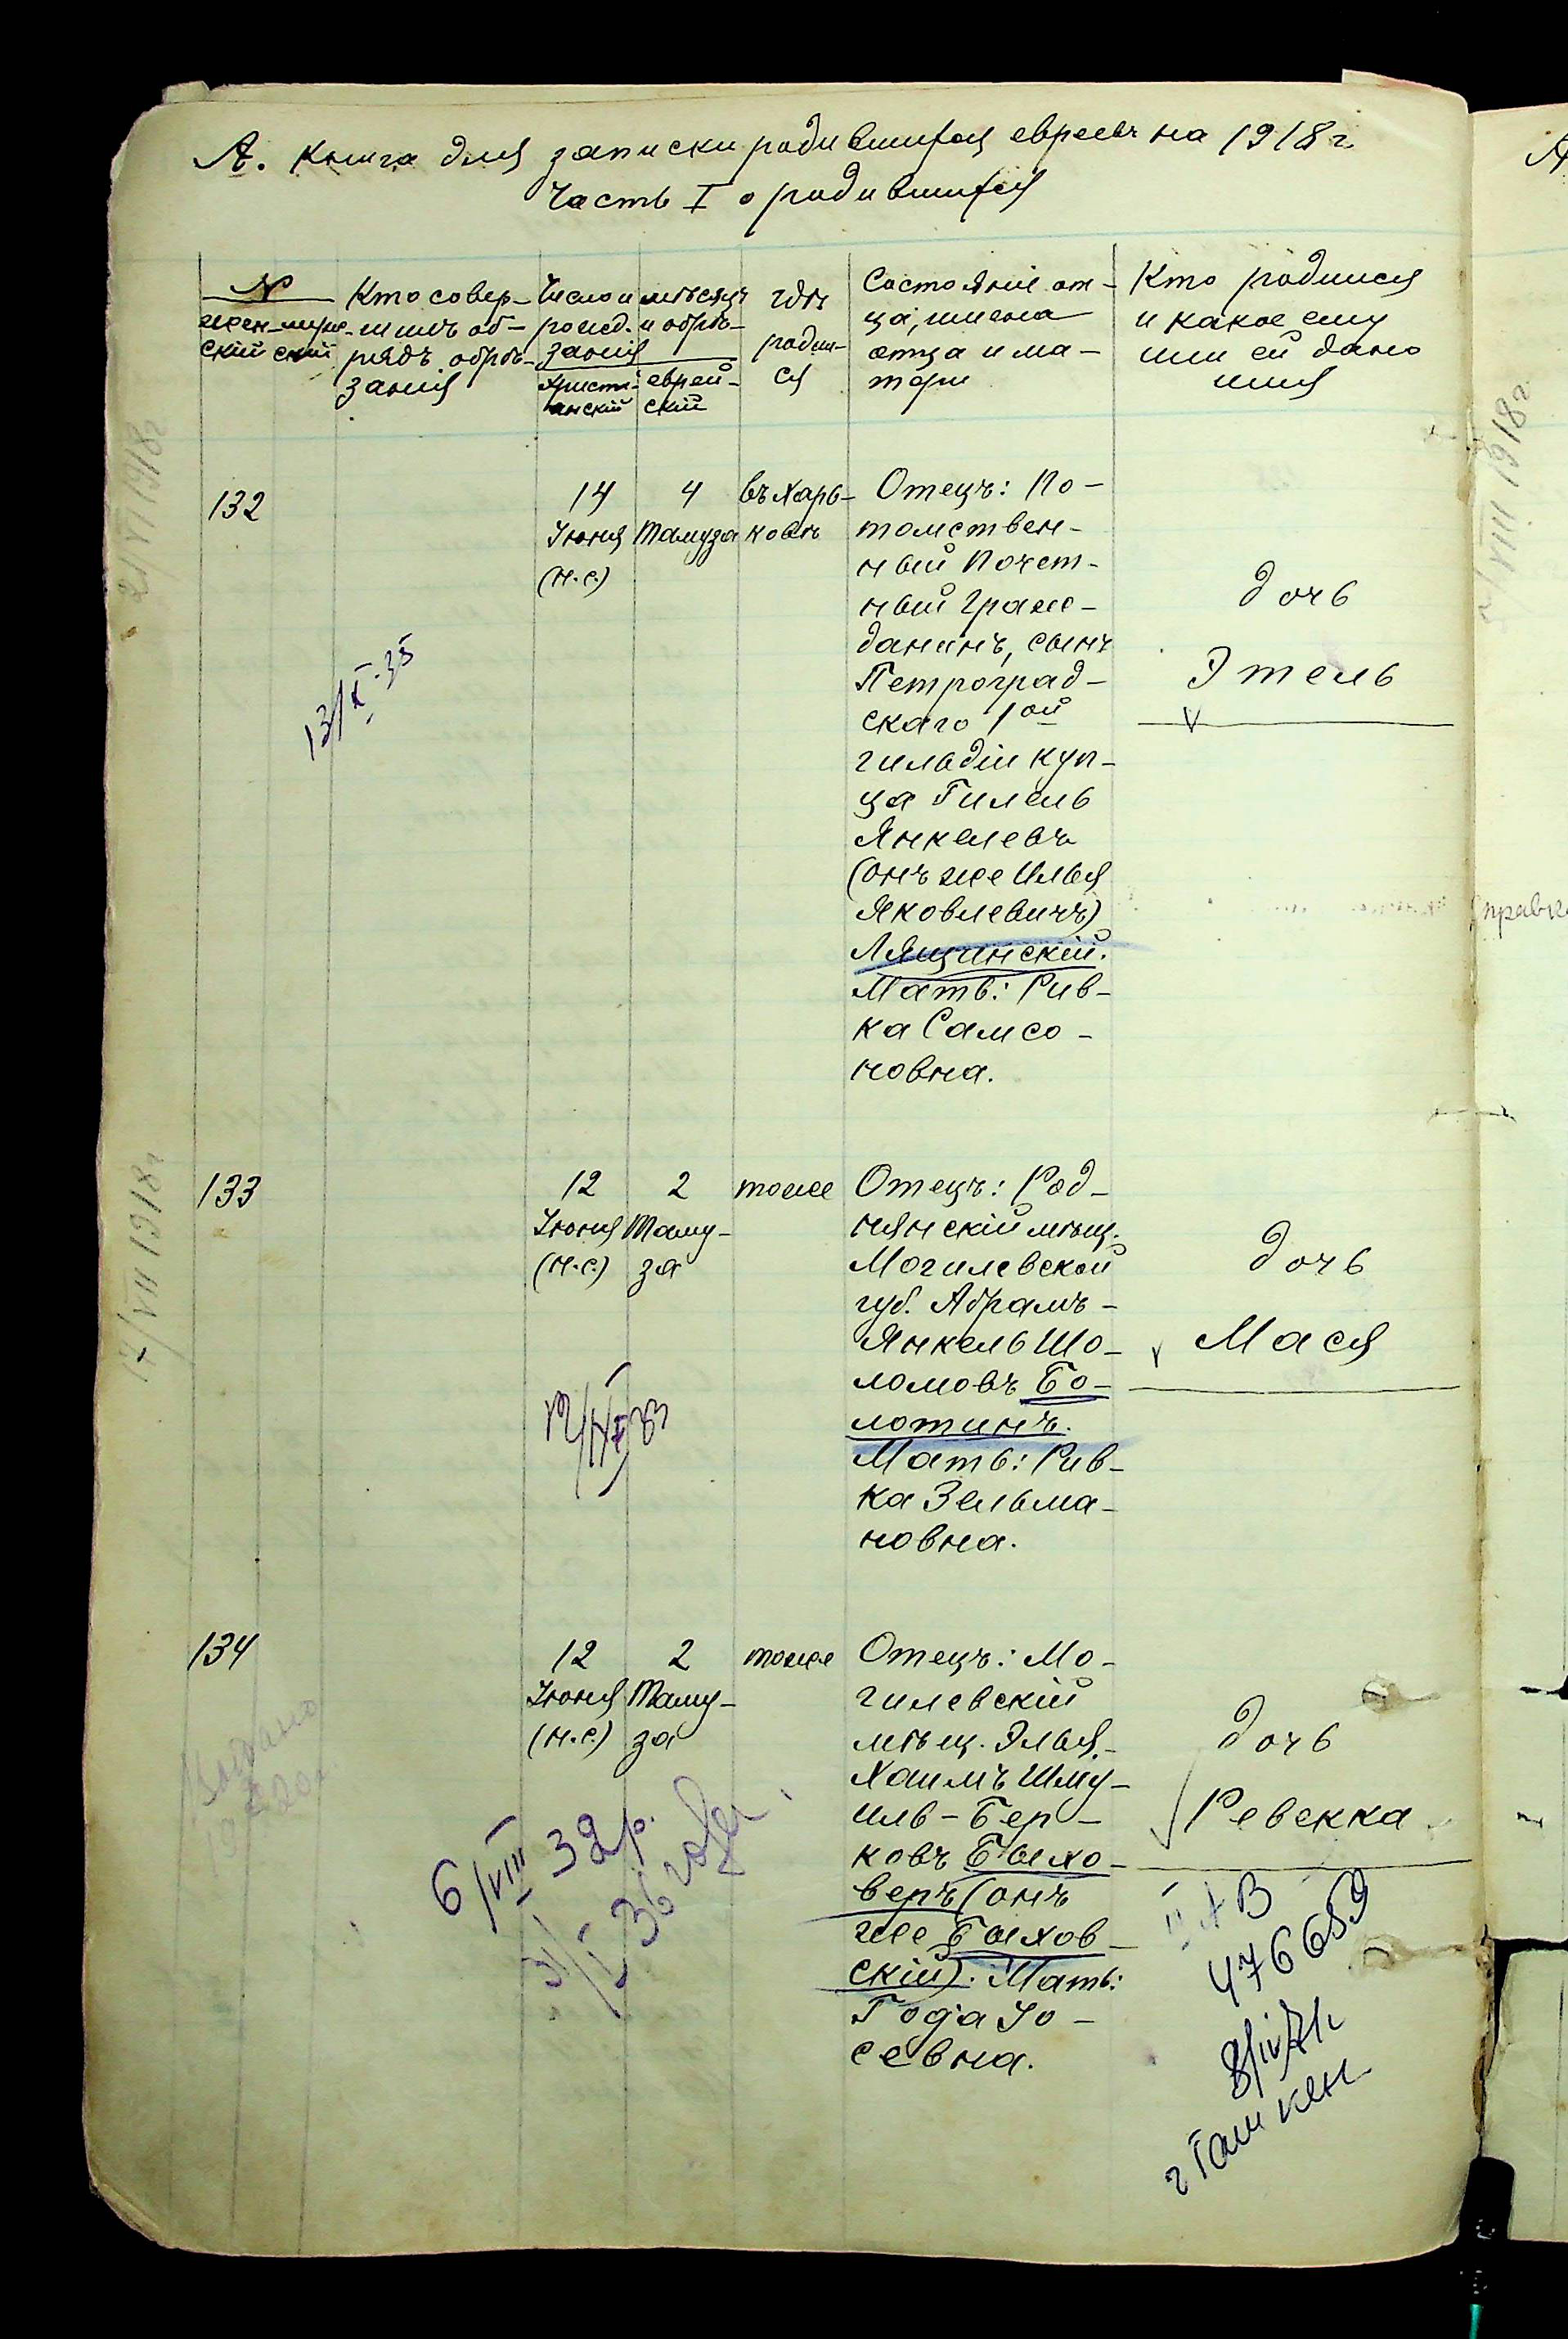 А. Книга для записки родившихся евреевъ на 1918 г.
Часть I о родившихся
N
женскій мужескій
Кто совер-
шилъ об-
рядъ обрѣ-
занія
Число и мѣсяцъ
рожд. и обрѣ-
занія
христі-
анскій
еврей-
скій
гдѣ
родил-
ся
Состояніе от-
ца, имена
отца и ма-
тери
Кто родился
и какое ему
или ей дано
имя
21/VI 1918 г
132
14
Іюня
(н.с.)
4
Тамуза
въ Харь-
ковѣ
Отецъ: По-
томствен-
ный Почет-
ный Граж-
данинъ, сынъ
Петроград-
скаго 1ой
гильдіи куп-
ца Гилель
Янкелевъ
(онъ же Илья
Яковлевичъ)
Лящинскій.
Мать: Рив-
ка Самсо-
новна.
дочь
Этель
13/X-35
17/VII 1918 г
133
12
Іюня
(н.с.)
2
Таму-
за
тоже
Отецъ: Род-
нянскій мѣщ.
Могилевской
губ. Абрамъ-
Янкель Шо-
ломовъ Бо-
лотинъ.
Мать: Рив-
ка Зельма-
новна.
дочь
Мася
134
12
Іюня
(н.с.)
2
Таму-
за
тоже
Отецъ: Мо-
гилевскій
мѣщ. Элья-
Хаимъ Шму-
иль-Бер-
ковъ Быхо-
веръ (онъ
же Быхов-
скій). Мать:
Года Іо-
севна.
дочь
Ревекка
Выдано
6/VIII 32 р.
476689
г Ташкен
VIII 1918 г